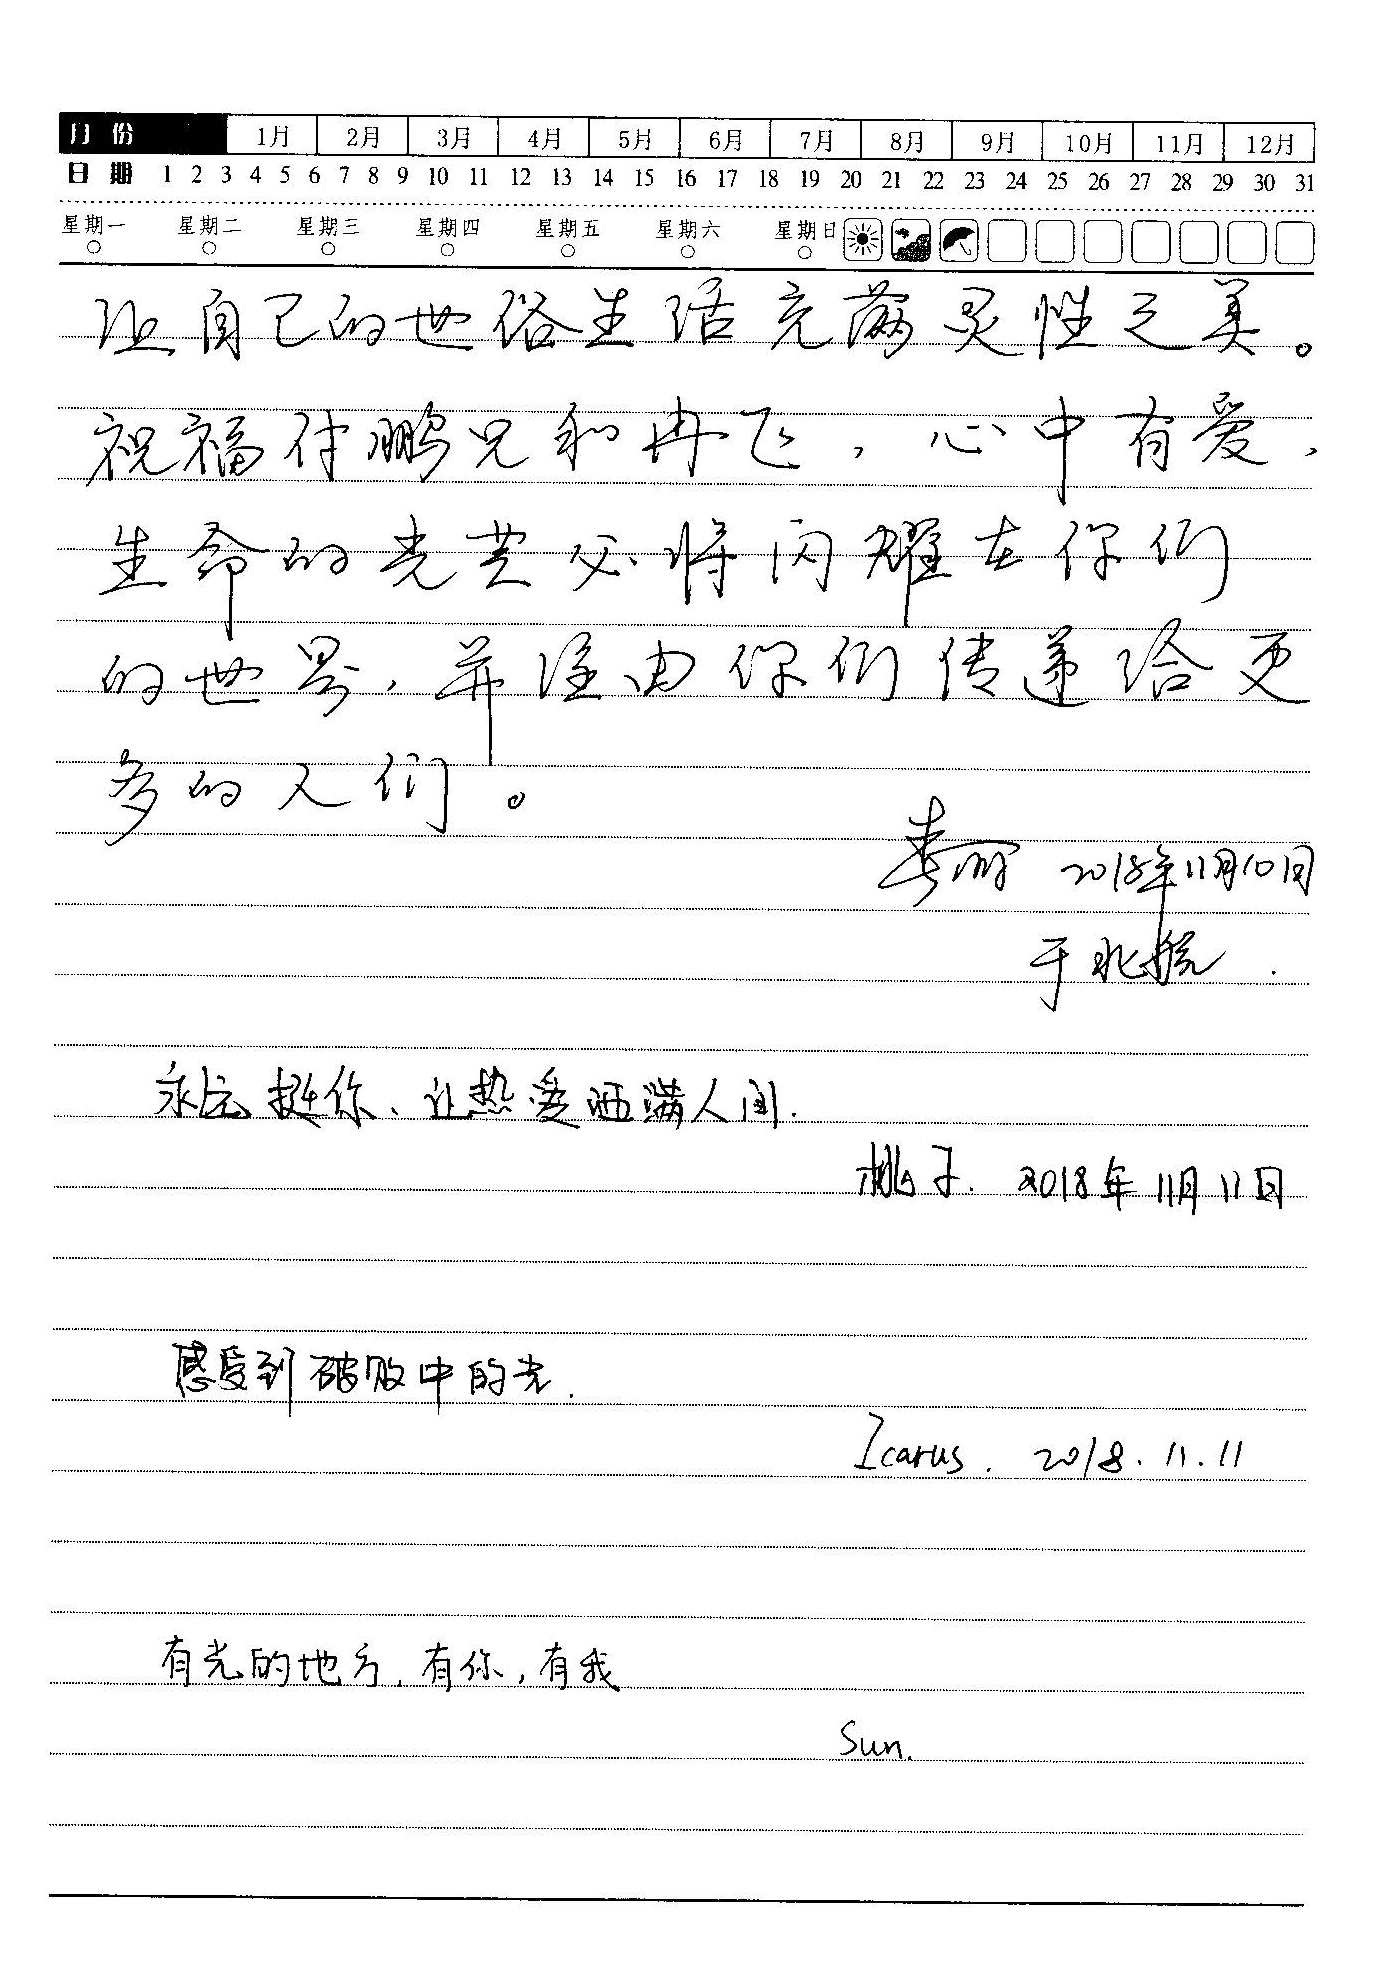 月份 1月 2月 3月 4月 5月 6月 7月 8月 9月 10月 11月 12月
日期 1 2 3 4 5 6 7 8 9 10 11 12 13 14 15 16 17 18 19 20 21 22 23 24 25 26 27 28 29 30 31
星期一 星期二 星期三 星期四 星期五 星期六 星期日
让自己的世俗生活充满灵性之美。
祝福付鹏兄和冉飞,心中有爱,
生命的光芒必将闪耀在你们
的世界,并经由你们传递给更
多的人们。
2018年11月10日
于北航.
永远挺你、让热爱洒满人间.
桃子. 2018年11月11日
感受到破败中的光.
Icarus. 2018.11.11
有光的地方,有你,有我
Sun.